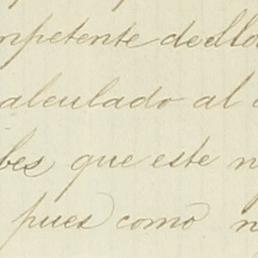 mpetente de ello
alculado al
bes que este n
pues como n